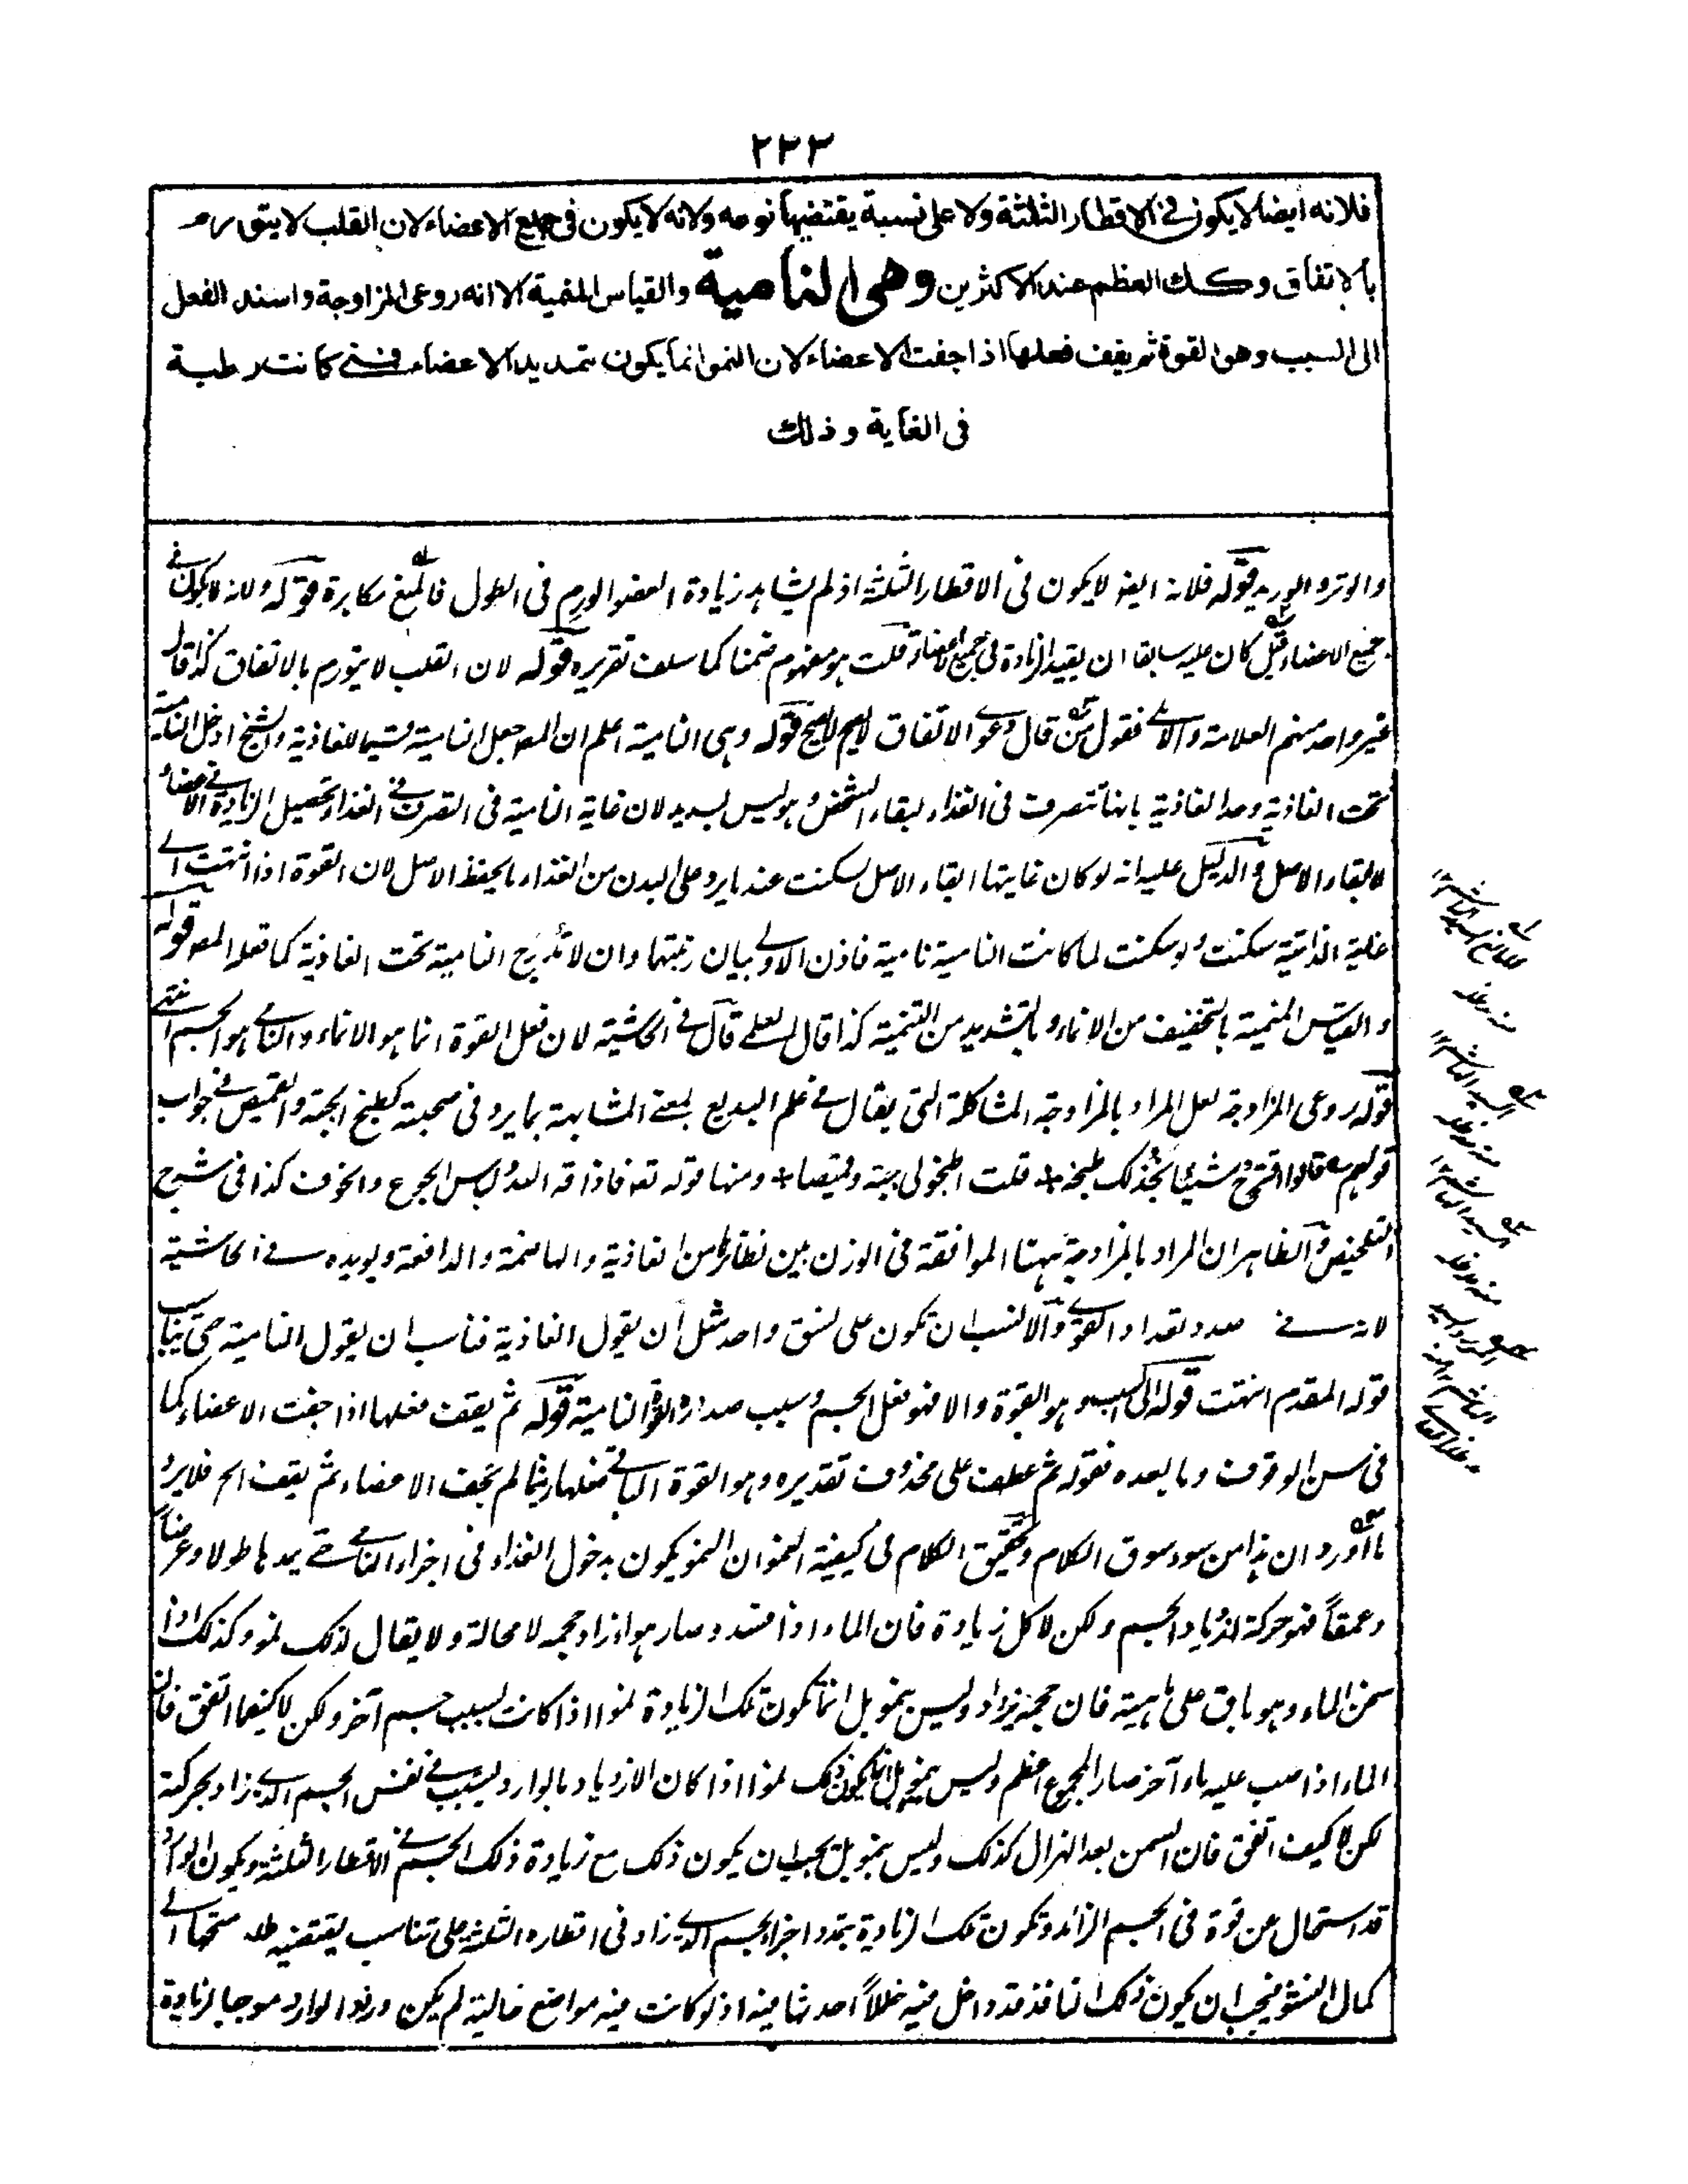 ٢٣٣
فلانه ايضا لا يكون فى الاقطار الثلثة ولا على نسبة يقتضيها نوعه ولانه لا يكون فى جميع الاعضاء لان القلب لا يتورم
بالاتفاق وكذلك العظم عند الاكثرين وهى النامية والقياس المنمية الا انه روعى المزاوجة واسند الفعل
الى السبب وهو القوة ثم يقف فعلها اذا جفت الاعضاء لان النمو انما يكون بتمديد الاعضاء فمتى كانت رطبة
فى الغاية وذلك
والوتر والوريد قوله فلانه ايضا لا يكون فى الاقطار الثلثة اذ لم يشاهد زيادة العضو الورم فى الطول فالمنع مكابرة قوله ولانه لا يكون فى
جميع الاعضاء قيل كان عليه سابقا ان يقيد الزيادة فى جميع الاعضاء قلت هو مفهوم ضمنا كما سلف تقريره قوله لان القلب لا يتورم بالاتفاق كذا قال
غير واحد منهم العلامة والآملى فقول من قال دعوى الاتفاق قوله وهى النامية اعلم ان المصـ جعل النامية قسيما للغاذية والشيخ ادخل النامية
تحت الغاذية وحد الغاذية بانها تتصرف فى الغذاء لبقاء الشخص وهو ليس بسديد لان غاية النامية فى التصرف فى الغذاء تحصيل الزيادة فى الاعضاء
لا لبقاء الاصل والدليل عليه انه لو كان غايتها ابقاء الاصل لسكنت عند ما يرد على البدن من الغذاء ما يحفظ الاصل لان القوة اذا انتهت الى
غاية الذاتية سكنت ولو سكنت لما كانت النامية نامية فاذن الاولى بيان رتبتها وان لا تدرج النامية تحت الغاذية كما فعل المصـ قوله
والقياس المنمية بالتخفيف من الانماء وبالتشديد من التنمية كذا قال قال فى الحاشية لان فعل القوة انما هو الانماء والنامى هو الجسم انتهى
قوله روعى المزاوجة لعل المراد بالمزاوجة المشاكلة التى يقال فى علم البديع لمعنى المشابهة بما يرد فى صحبته كطبخ الجبة والقميص فى جواب
قولهم قالوا اقترح شيئا نجد لك طبخه * قلت اطبخوا لى جبة وقميصا * ومنها قوله تعـ فاذاقه الله لباس الجوع والخوف كذا فى شرح
التلخيص والظاهر ان المراد بالمزاوجة ههنا الموافقة فى الوزن بين نظائرها من الغاذية والهاضمة والدافعة ويؤيده ما فى الحاشية
لانه فى صدد تعداد القوى والانسب ان تكون على نسق واحد مثل ان يقول الغاذية فناسب ان يقول النامية حتى يناسب
قوله المقدم انتهت قوله الى السبب وهو القوة والا فهو فعل الجسم وسبب صدوره القوة النامية قوله ثم يقف فعلها اذا جفت الاعضاء كما
فى سن الوقوف وما بعده فقوله ثم عطف على محذوف تقديره وهو القوة الباقى فعلها ريثما لم تجف الاعضاء ثم يقف الخ فلا يرد
ما اورد ان هذا من سوء سوق الكلام وتحقيق الكلام فى كيفية النمو ان النمو يكون بدخول الغذاء فى اجزاء النامى حتى يمدها طولا وعرضاً
وعمقاً فهو حركة ازدياد الجسم ولكن لا كل زيادة فان الماء اذا فسد وصار هواء زاد حجمه لا محالة ولا يقال لذلك نمو وكذلك اذا
سخن الماء وهو باق على مائيته فان حجمه يزداد وليس بنمو بل انما تكون تلك الزيادة نموا اذا كانت لسبب جسم آخر ولكن لا كيفما اتفق فان
الماء اذا صب عليه ماء آخر صار المجموع اعظم وليس بنمو بل انما يكون ذلك نموا اذا كان الازدياد بالوارد وليتشبث فى نفس الجسم الذى زاد بحركته
لكن لا كيف اتفق فان السمن بعد الهزال كذلك وليس بنمو بل يجب ان يكون ذلك مع زيادة ذلك الجسم فى الاقطار الثلثة ويكون الوارد
قد استحال عن قوة فى الجسم الزائد وتكون تلك الزيادة بتمدد اجزاء الجسم الذى زاد فى اقطاره الثلثة على تناسب يقتضيه طبعه متجها الى
كمال النشو فيجب ان يكون ذلك النافذ قد داخل فيه خللاً احدثها فيه اذ لو كانت فيه مواضع خالية لم يكن ورود الوارد موجبا لزيادة